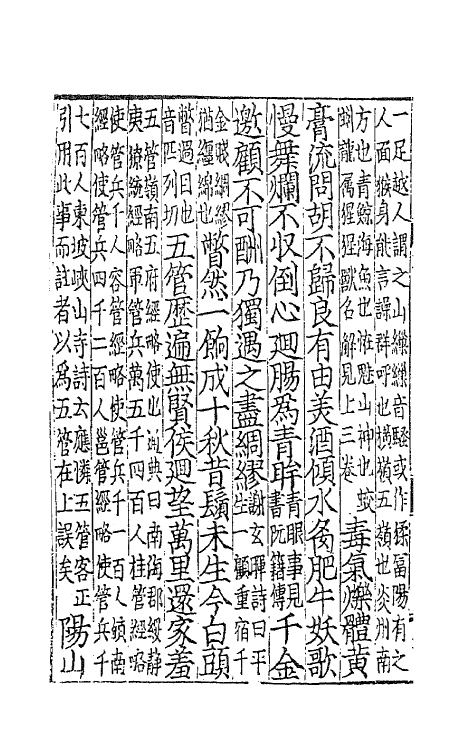 一足越人謂之山繅繅音騷或作富陽有之
人面猴身能言譟群呼也橫嶺五嶺也炎州南
方也青鯨海魚也恠魅山神也蛟
龍属猩猩獸名解見上三卷
毒氣爍體黃
膏流問胡不歸良有由美酒傾水炙肥牛妖歌
慢舞爛不収倒心廻腸為青眸
青眼事見
書阮籍傳
千金
邀顧不可酬乃獨遇之盡綢繆
謝玄暉詩曰平
生一顧重宿千
金賤綢繆
猶纏綿也
瞥然一餉成十秋昔鬚未生今白頭
瞥過目也
音匹列切
五管歷遍無賢侯廻望萬里還家羞
五管嶺南五府經略使也通典曰南海郡綏静
夷獠統經略軍管兵萬五千四百人桂管經略
使管兵千人容管經略使管兵千一百人鎮南
經略使管兵四千二百人邕管經略使管兵千
七百人東坡峽山寺詩云應憐五管客正
引用此事而註者以為五管在上誤矣
陽山